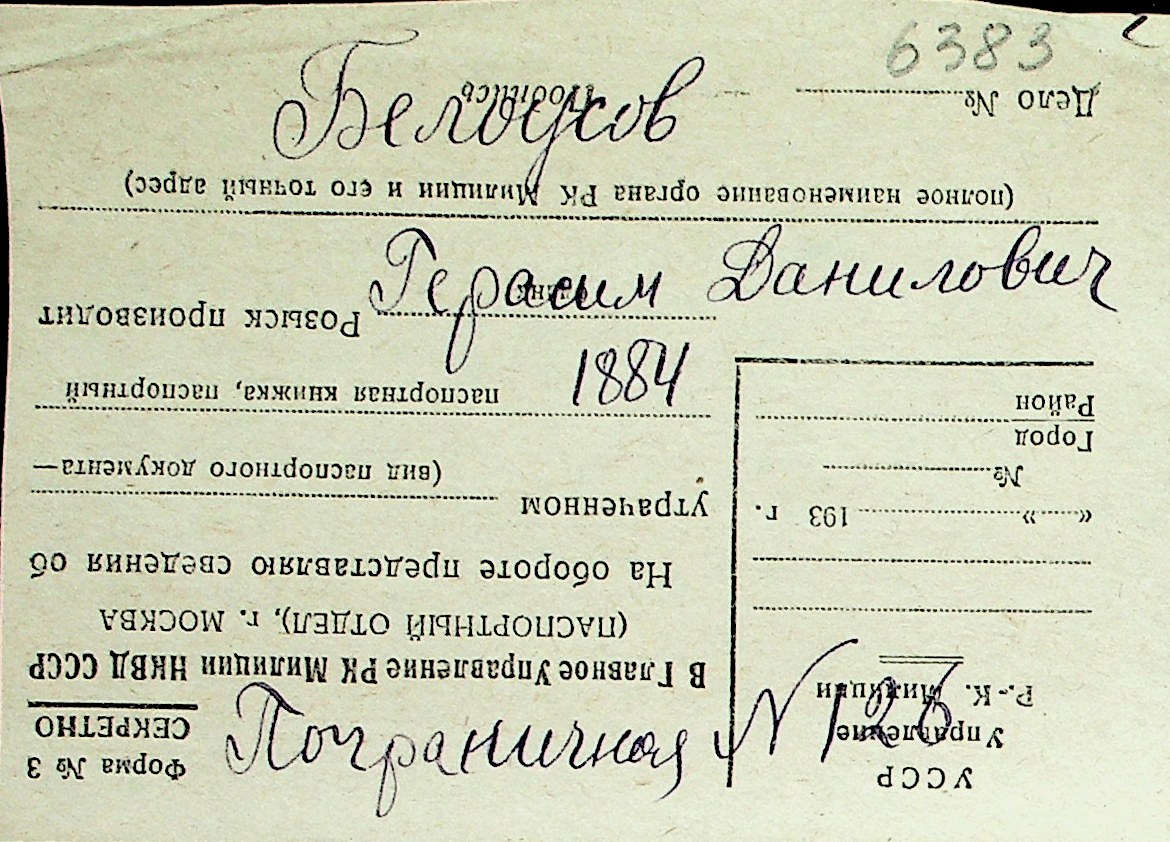 6383
Белоусов
Герасим Данилович
1884
Пограничная N 126
УССР
Управление
Р.-К. Милиции
« » 193 г.
№
Город
Район
Форма № 3
СЕКРЕТНО
В Главное Управление РК Милиции НКВД СССР
(ПАСПОРТНЫЙ ОТДЕЛ), г. МОСКВА
На обороте представляю сведения об
утраченном
(вид паспортного документа—
паспортная книжка, паспортный
бланк
Розыск производит
(полное наименование органа РК Милиции и его точный адрес)
Дело №
Подпись